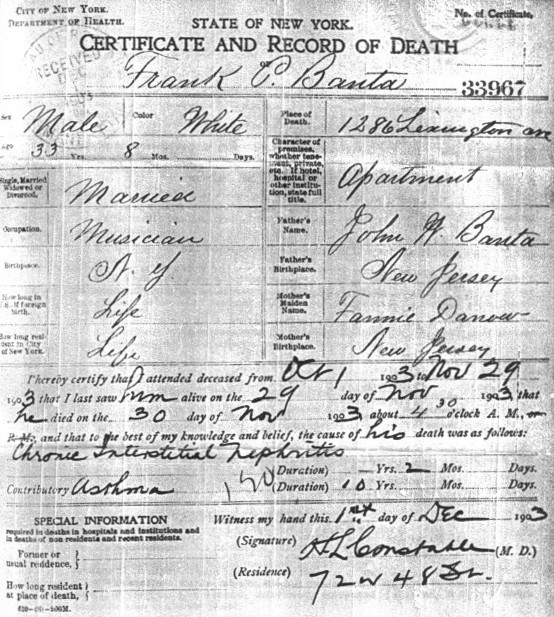 CITY OF NEW YORK.
DEPARTMENT OF HEALTH.
STATE OF NEW YORK.
No. of Certificate,
CERTIFICATE AND RECORD OF DEATH
OF
Frank P. Banta
33967
RECEIVED
DEC
Sex Male Color White Place of Death, 1286 Lexington av
Age 33 Yrs. 8 Mos. Days.
Character of premises, whether tenement, private, etc. If hotel, hospital or other institution, state full title. Apartment
Single, Married Widowed or Divorced, Married
Occupation, Musician Father's Name, John W. Banta
Birthplace, N. Y. Father's Birthplace, New Jersey
How long in U.S. if foreign birth. Life Mother's Maiden Name, Fannie
How long resident in City of New York. Life Mother's Birthplace, New Jersey
I hereby certify that I attended deceased from Oct 1 1903 to Nov 29
1903 that I last saw him alive on the 29 day of Nov 1903 that
he died on the 30 day of Nov 1903 about 4 30 o'clock A. M., or
P. M., and that to the best of my knowledge and belief, the cause of his death was as follows:
Chronic Interstitial Nephritis
(Duration) — Yrs. 2 Mos. Days.
Contributory Asthma 120 (Duration) 10 Yrs. Mos. Days.
SPECIAL INFORMATION
required in deaths in hospitals and institutions and in deaths of non residents and recent residents.
Former or usual residence,
How long resident at place of death,
Witness my hand this 1st day of Dec 1903
(Signature) H L Constable (M. D.)
(Residence) 72 W 48 St.